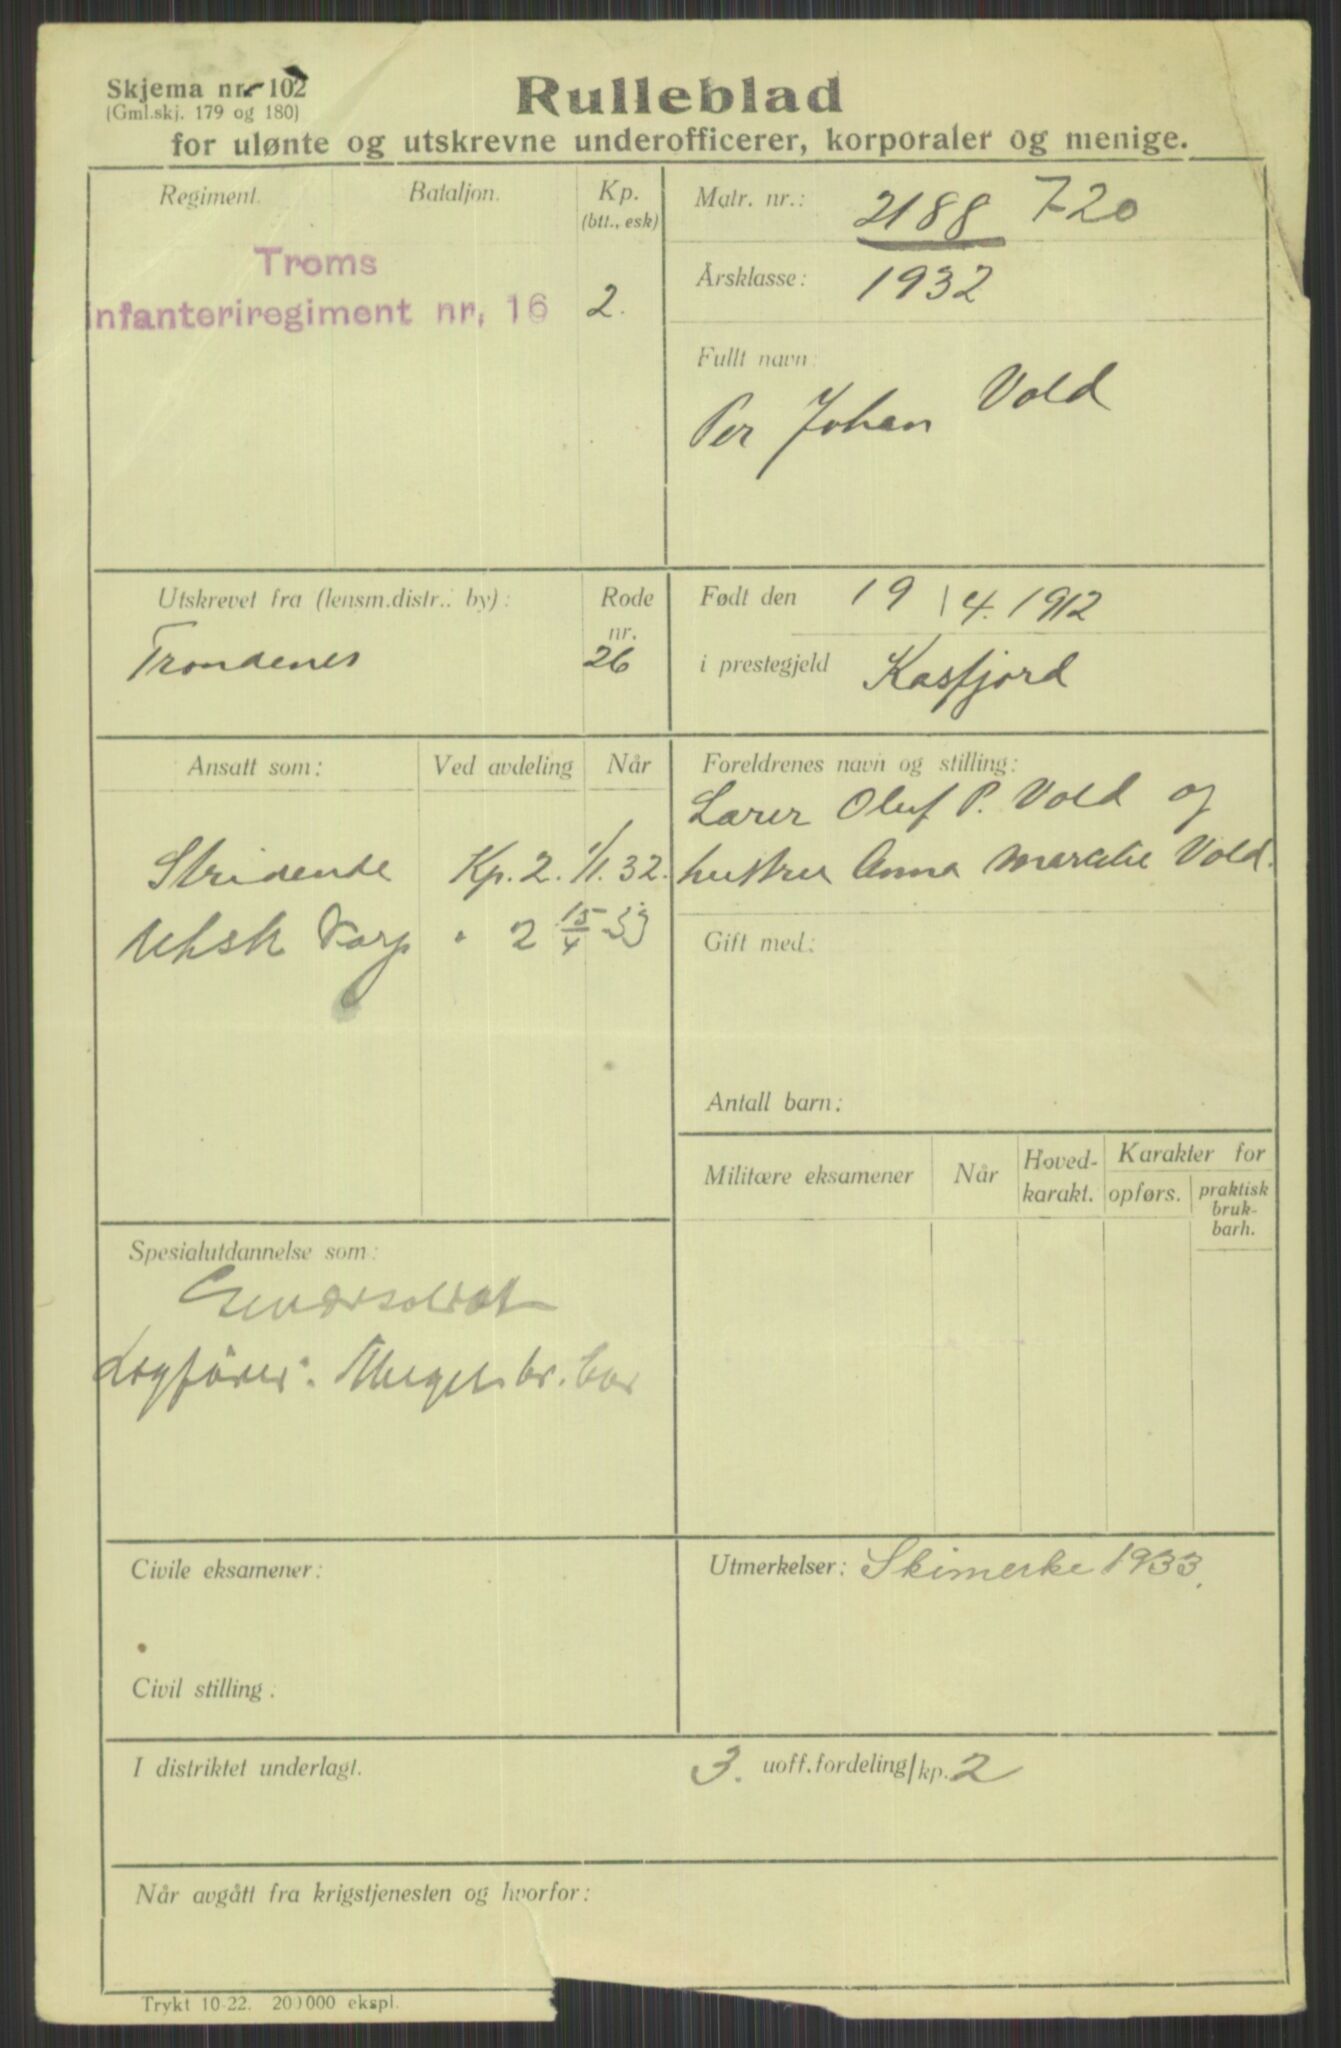 Skjema nr. 102
(Gml.skj. 179 og 180)
Rulleblad
for ulønte og utskrevne underofficerer, korporaler og menige.
Regiment. Bataljon. Kp. (btt., esk)
Troms
infanteriregiment nr. 16 2.
Matr. nr.: 2188 720
Årsklasse: 1932
Fullt navn:
Per Johan Vold
Utskrevet fra (lensm.distr.: by): Rode nr.
Trondenes 26
Født den 19/4. 1912
i prestegjeld Kasfjord
Ansatt som: Ved avdeling Når
Stridende Kp. 2. 1/1. 32.
Utsk Korp " 2 15/4 33
Foreldrenes navn og stilling:
Lærer Oluf P. Vold og
hustru Anna Vold.
Gift med:
Antall barn:
Militære eksamener Når Hoved-karakt. Karakter for
opførs. praktisk
bruk-
barh.
Spesialutdannelse som:
Geværsoldat
Lagfører.
Civile eksamener:
Utmerkelser: Skimerke 1933.
Civil stilling:
I distriktet underlagt. 3. uoff.fordeling/kp. 2
Når avgått fra krigstjenesten og hvorfor:
Trykt 10-22. 200000 ekspl.